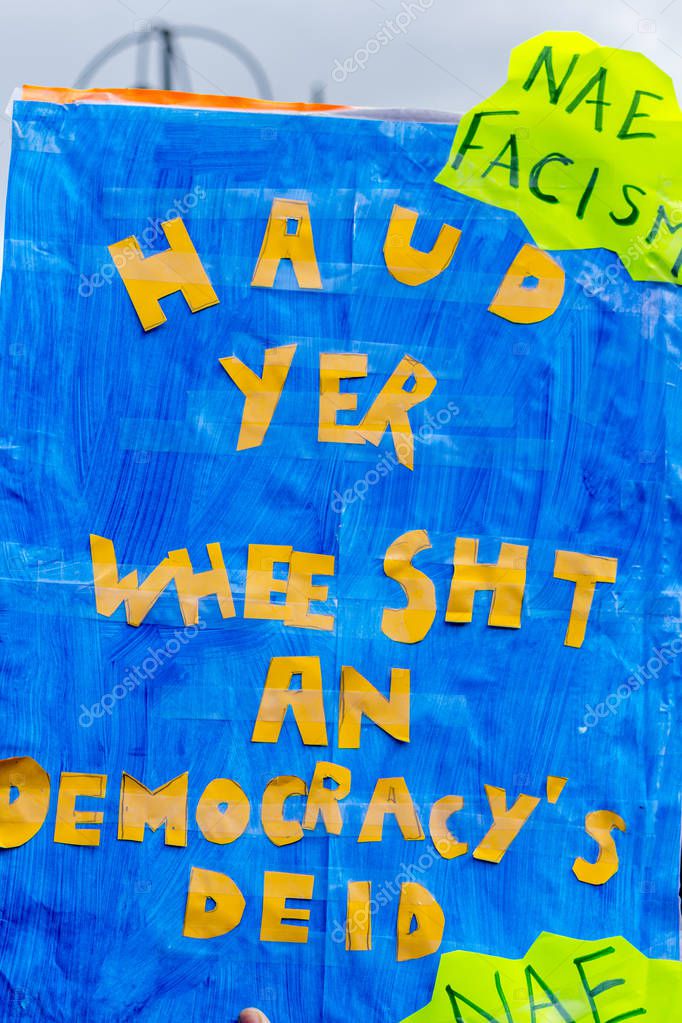 NAE
FACISM
HAUD
YER
WHEESHT
AN
DEMOCRACY'S
DEID
NAE